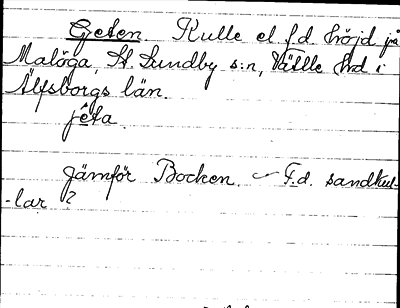 Geten. Kulle el f.d. höjd på
Malöga, St. Lundby s:n, Vättle hrd i
Älfsborgs län.
jêta.
Jämför Bocken. – F.d. sandkul-
-lar ?